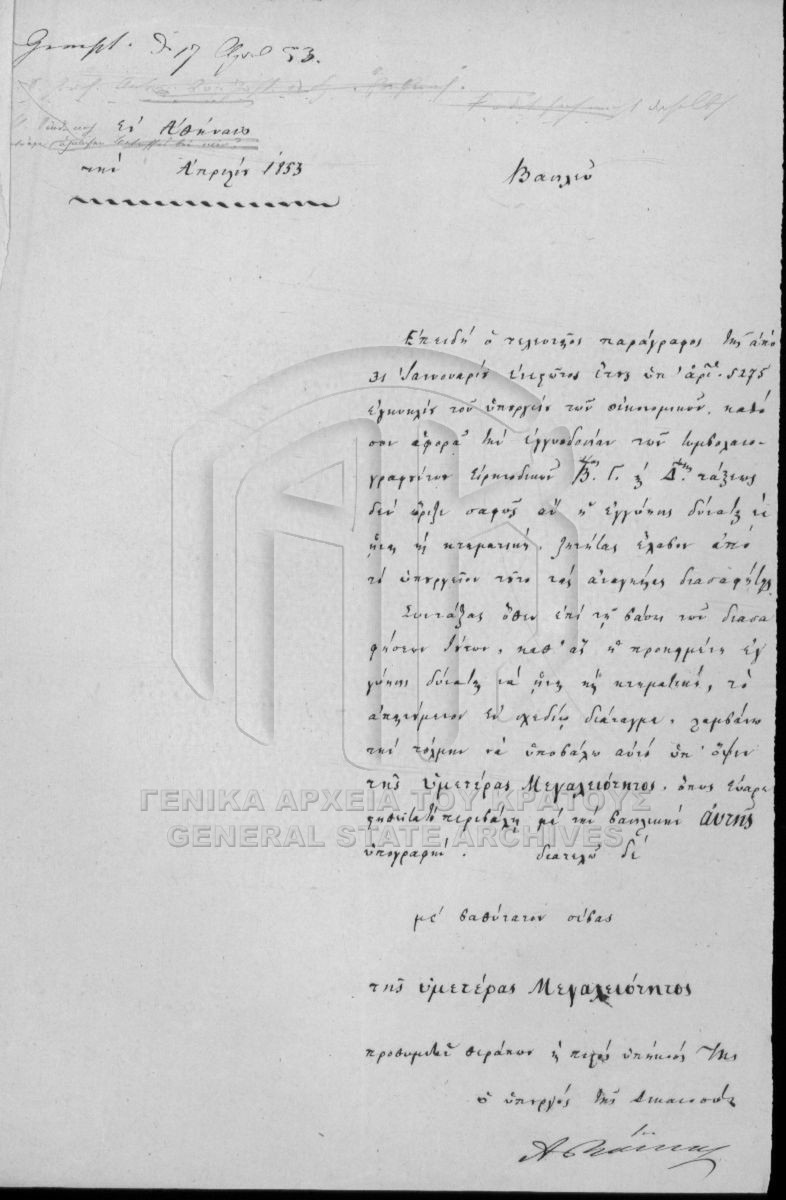 17 April 53.
Ἐν Ἀθήναις
τὴν Ἀπριλίου 1853
Βασιλεῦ
Ἐπειδὴ ὁ τελευταῖος παράγραφος τῆς ἀπὸ
31 Ἰαννουαρίου ἐνεστῶτος ἔτους ὑπ' ἀριθ. 5275
ἐγκυκλίου τοῦ ὑπουργείου τῶν οἰκονομικῶν, καθό
σον ἀφορᾷ τὴν ἐγγυοδοσίαν τῶν συμβολαιο-
γραφούντων εἰρηνοδικῶν Β. Γ. καὶ Δ. τάξεως
δὲν ὥριζε σαφῶς ἂν ἡ ἐγγύησις δύναται νὰ
ἦναι καὶ κτηματικὴ, ζητήσας ἔλαβον ἀπὸ
τὸ ὑπουργεῖον τοῦτο τὰς ἀναγκαίας διασαφήσεις
Συντάξας ὅθεν ἐπὶ τῇ βάσει τῶν διασα
φήσεων τούτων, καθ' ἃς ἡ προκειμένη ἐγ
γύησις δύναται νὰ ἦναι καὶ κτηματικὴ, τὸ
ἐπισυνημμένον ἐν σχεδίῳ διάταγμα, λαμβάνω
τὴν τόλμην νὰ ὑποβάλω αὐτὸ ὑπ' ὄψιν
τῆς ὑμετέρας Μεγαλειότητος, ὅπως εὐαρε
στηθεῖσα τὸ περιβάλῃ μὲ τὴν βασιλικὴν αὐτῆς
ὑπογραφήν. διατελῶ δὲ
μὲ βαθύτατον σέβας
τῆς ὑμετέρας Μεγαλειότητος
προθυμότατος θεράπων καὶ πιστὸς ὑπήκοος Της
ὁ ὑπουργὸς τῆς Δικαιοσύνης
ΓΕΝΙΚΑ ΑΡΧΕΙΑ ΤΟΥ ΚΡΑΤΟΥΣ
GENERAL STATE ARCHIVES